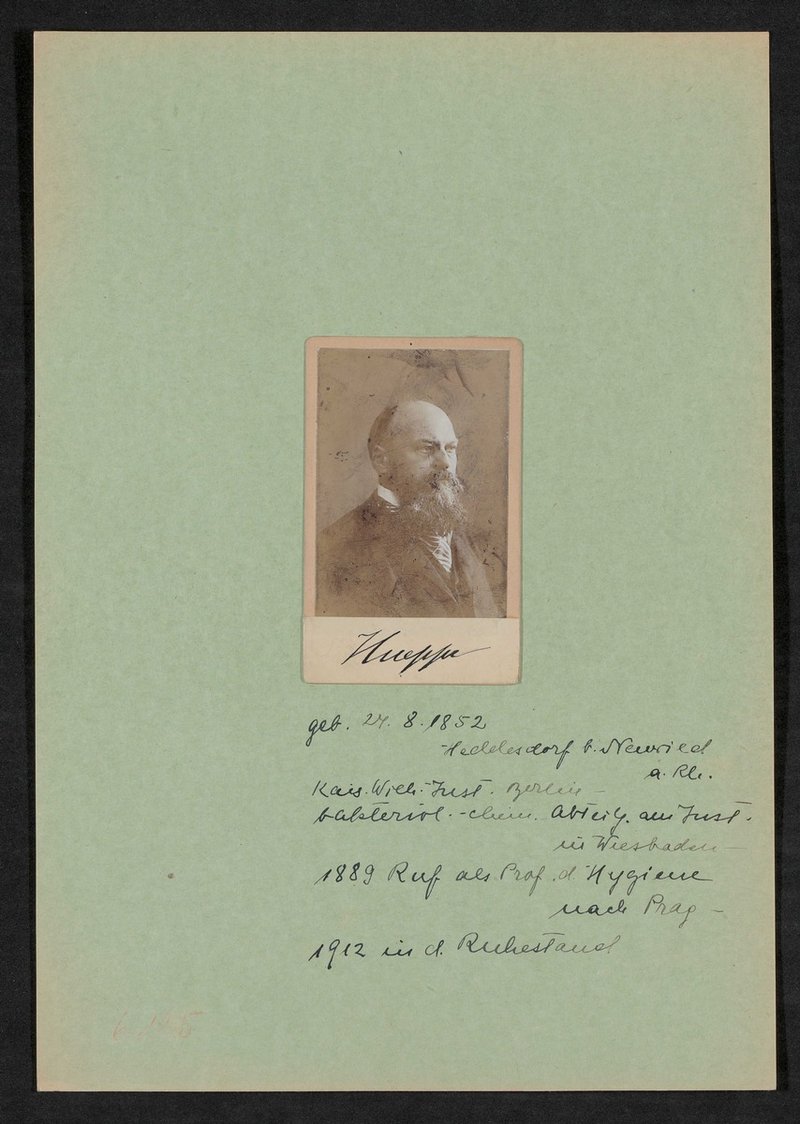 Hueppe
geb. 24. 8. 1852
Heddesdorf b. Neuwied
a. Rh.
Kais. Wilh. Inst. Berlin –
bakteriol. - chem. Abteilg. am Inst.
in Wiesbaden –
1889 Ruf als Prof. d. Hygiene
nach Prag –
1912 in d. Ruhestand